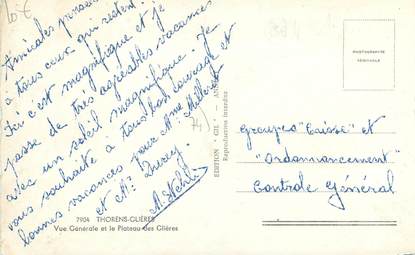 10€
Amicales pensées
à tous ceux qui restent
Ici c'est magnifique et je
passe de très agréables vacances
avec un soleil magnifique. Je
vous souhaite à tous bon courage et
bonnes vacances pour Mme
et Mr
7904 THORENS-GLIÈRES
Vue Générale et le Plateau des Glières
EDITION "GIL"
Reproduction Interdite
74
PHOTOGRAPHIE
VÉRITABLE
Groupes "Caisse" et
"Ordonnancement"
Contrôle Général